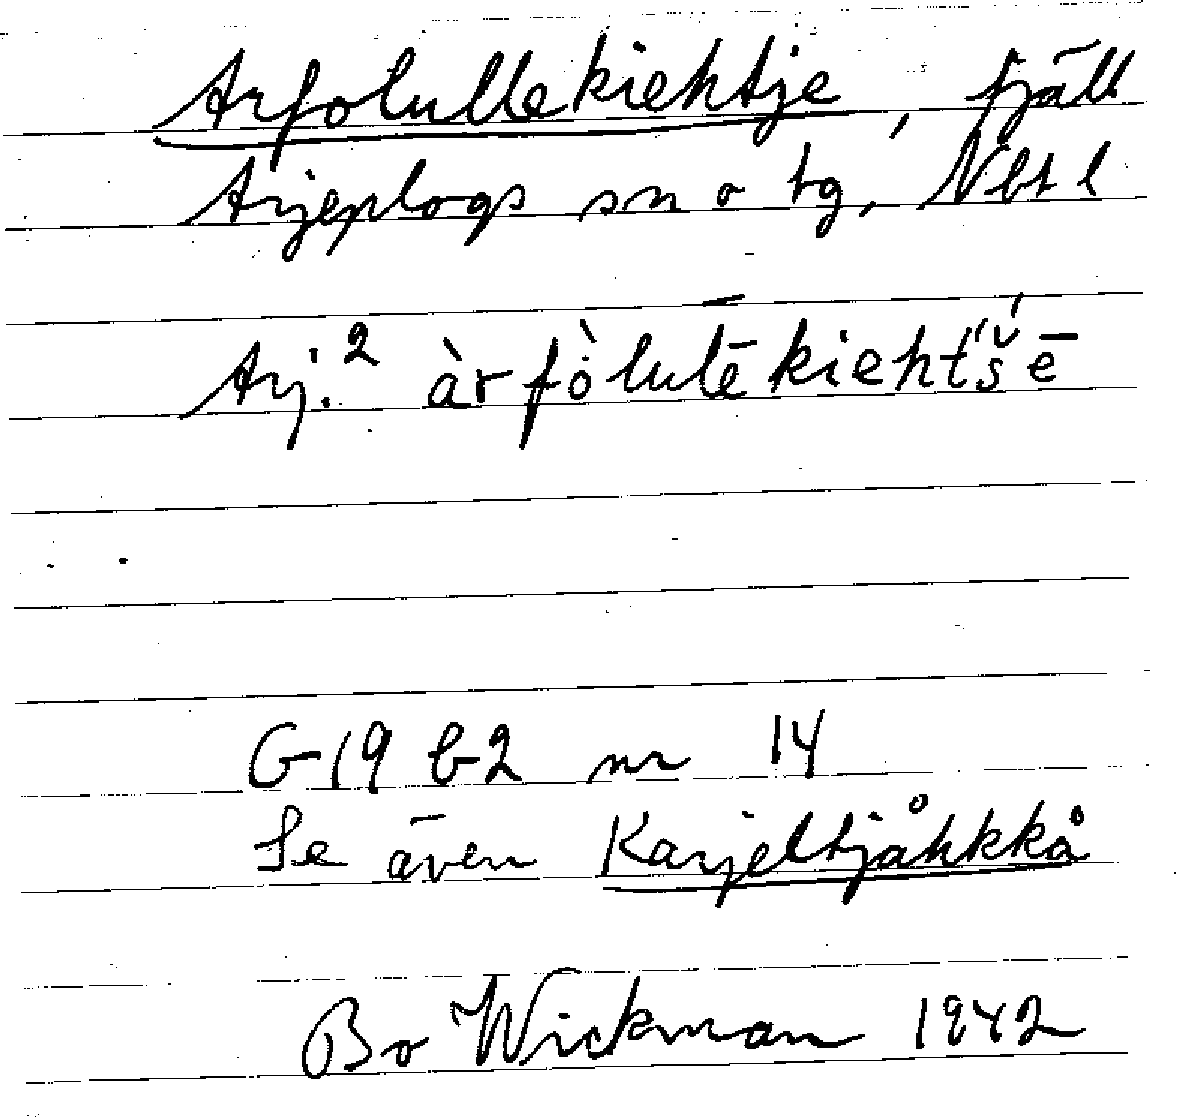 Arfolullekiehtje, fjäll
Arjeplogs sn o tg, Nbt l
Arj.2 àrfòlulēkieht́š́ē
G19 b2 nr 14
Se även Karjeltjåhkkå
Bo Wickman 1942